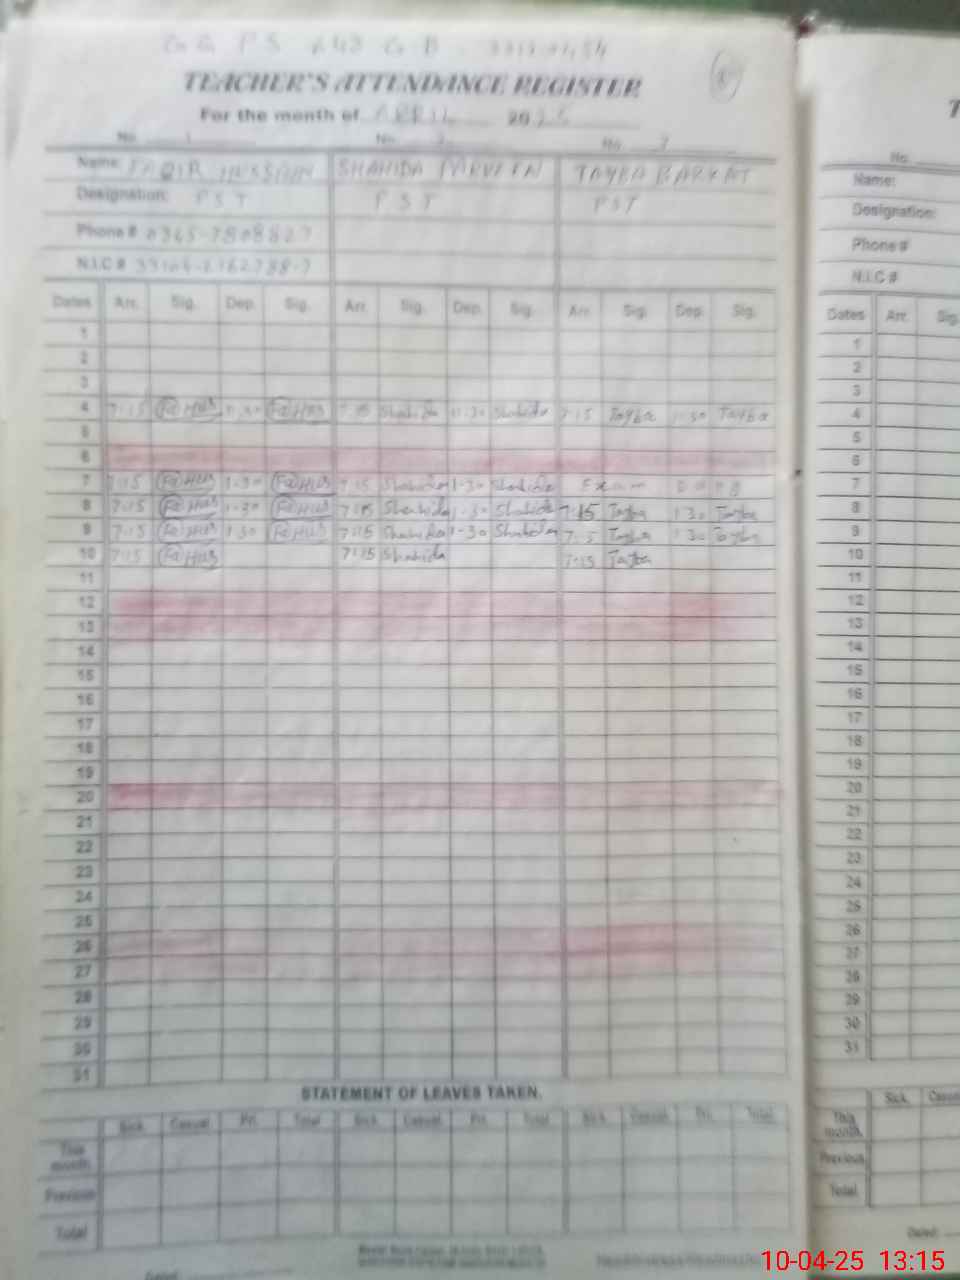 TEACHER'S ATTENDANCE REGISTER
For the month of APRIL 2025
No. 1 No. 2 No. 3
Name: FAQIR HUSSAIN SHAHIDA PARVEEN TAYBA BARKAT
Designation: PST PST PST
Phone #
N.I.C #
Dates Arr. Sig. Dep. Sig. Arr. Sig. Dep. Sig. Arr. Sig. Dep. Sig.
1
2
3
4 7:15 FaHus 11:30 FaHus 7:15 Shahida 11:30 Shahida 7:15 Tayba 11:30 Tayba
5
6
7 7:15 FaHus 1-30 FaHus 7:15 Shahida 1-30 Shahida Exam
8 7:15 FaHus 1-30 FaHus 7:15 Shahida 1-30 Shahida 7:15 Tayba 1 30 Tayba
9 7:15 FaHus 1 30 FaHus 7:15 Shahida 1-30 Shahida 7:15 Tayba 1 30 Tayba
10 7:15 FaHus 7:15 Shahida 7:15 Tayba
11
12
13
14
15
16
17
18
19
20
21
22
23
24
25
26
27
28
29
30
31
STATEMENT OF LEAVES TAKEN.
Sick. Casual Pri. Total Sick. Casual Pri. Total Sick. Casual Pri. Total
This month.
Previous
Total
No.
Name:
Designation:
Phone #
N.I.C #
Dates Arr. Sig.
1
2
3
4
5
6
7
8
9
10
11
12
13
14
15
16
17
18
19
20
21
22
23
24
25
26
27
28
29
30
31
Sick. Casual
This month.
Previous
Total
Dated:
10-04-25 13:15